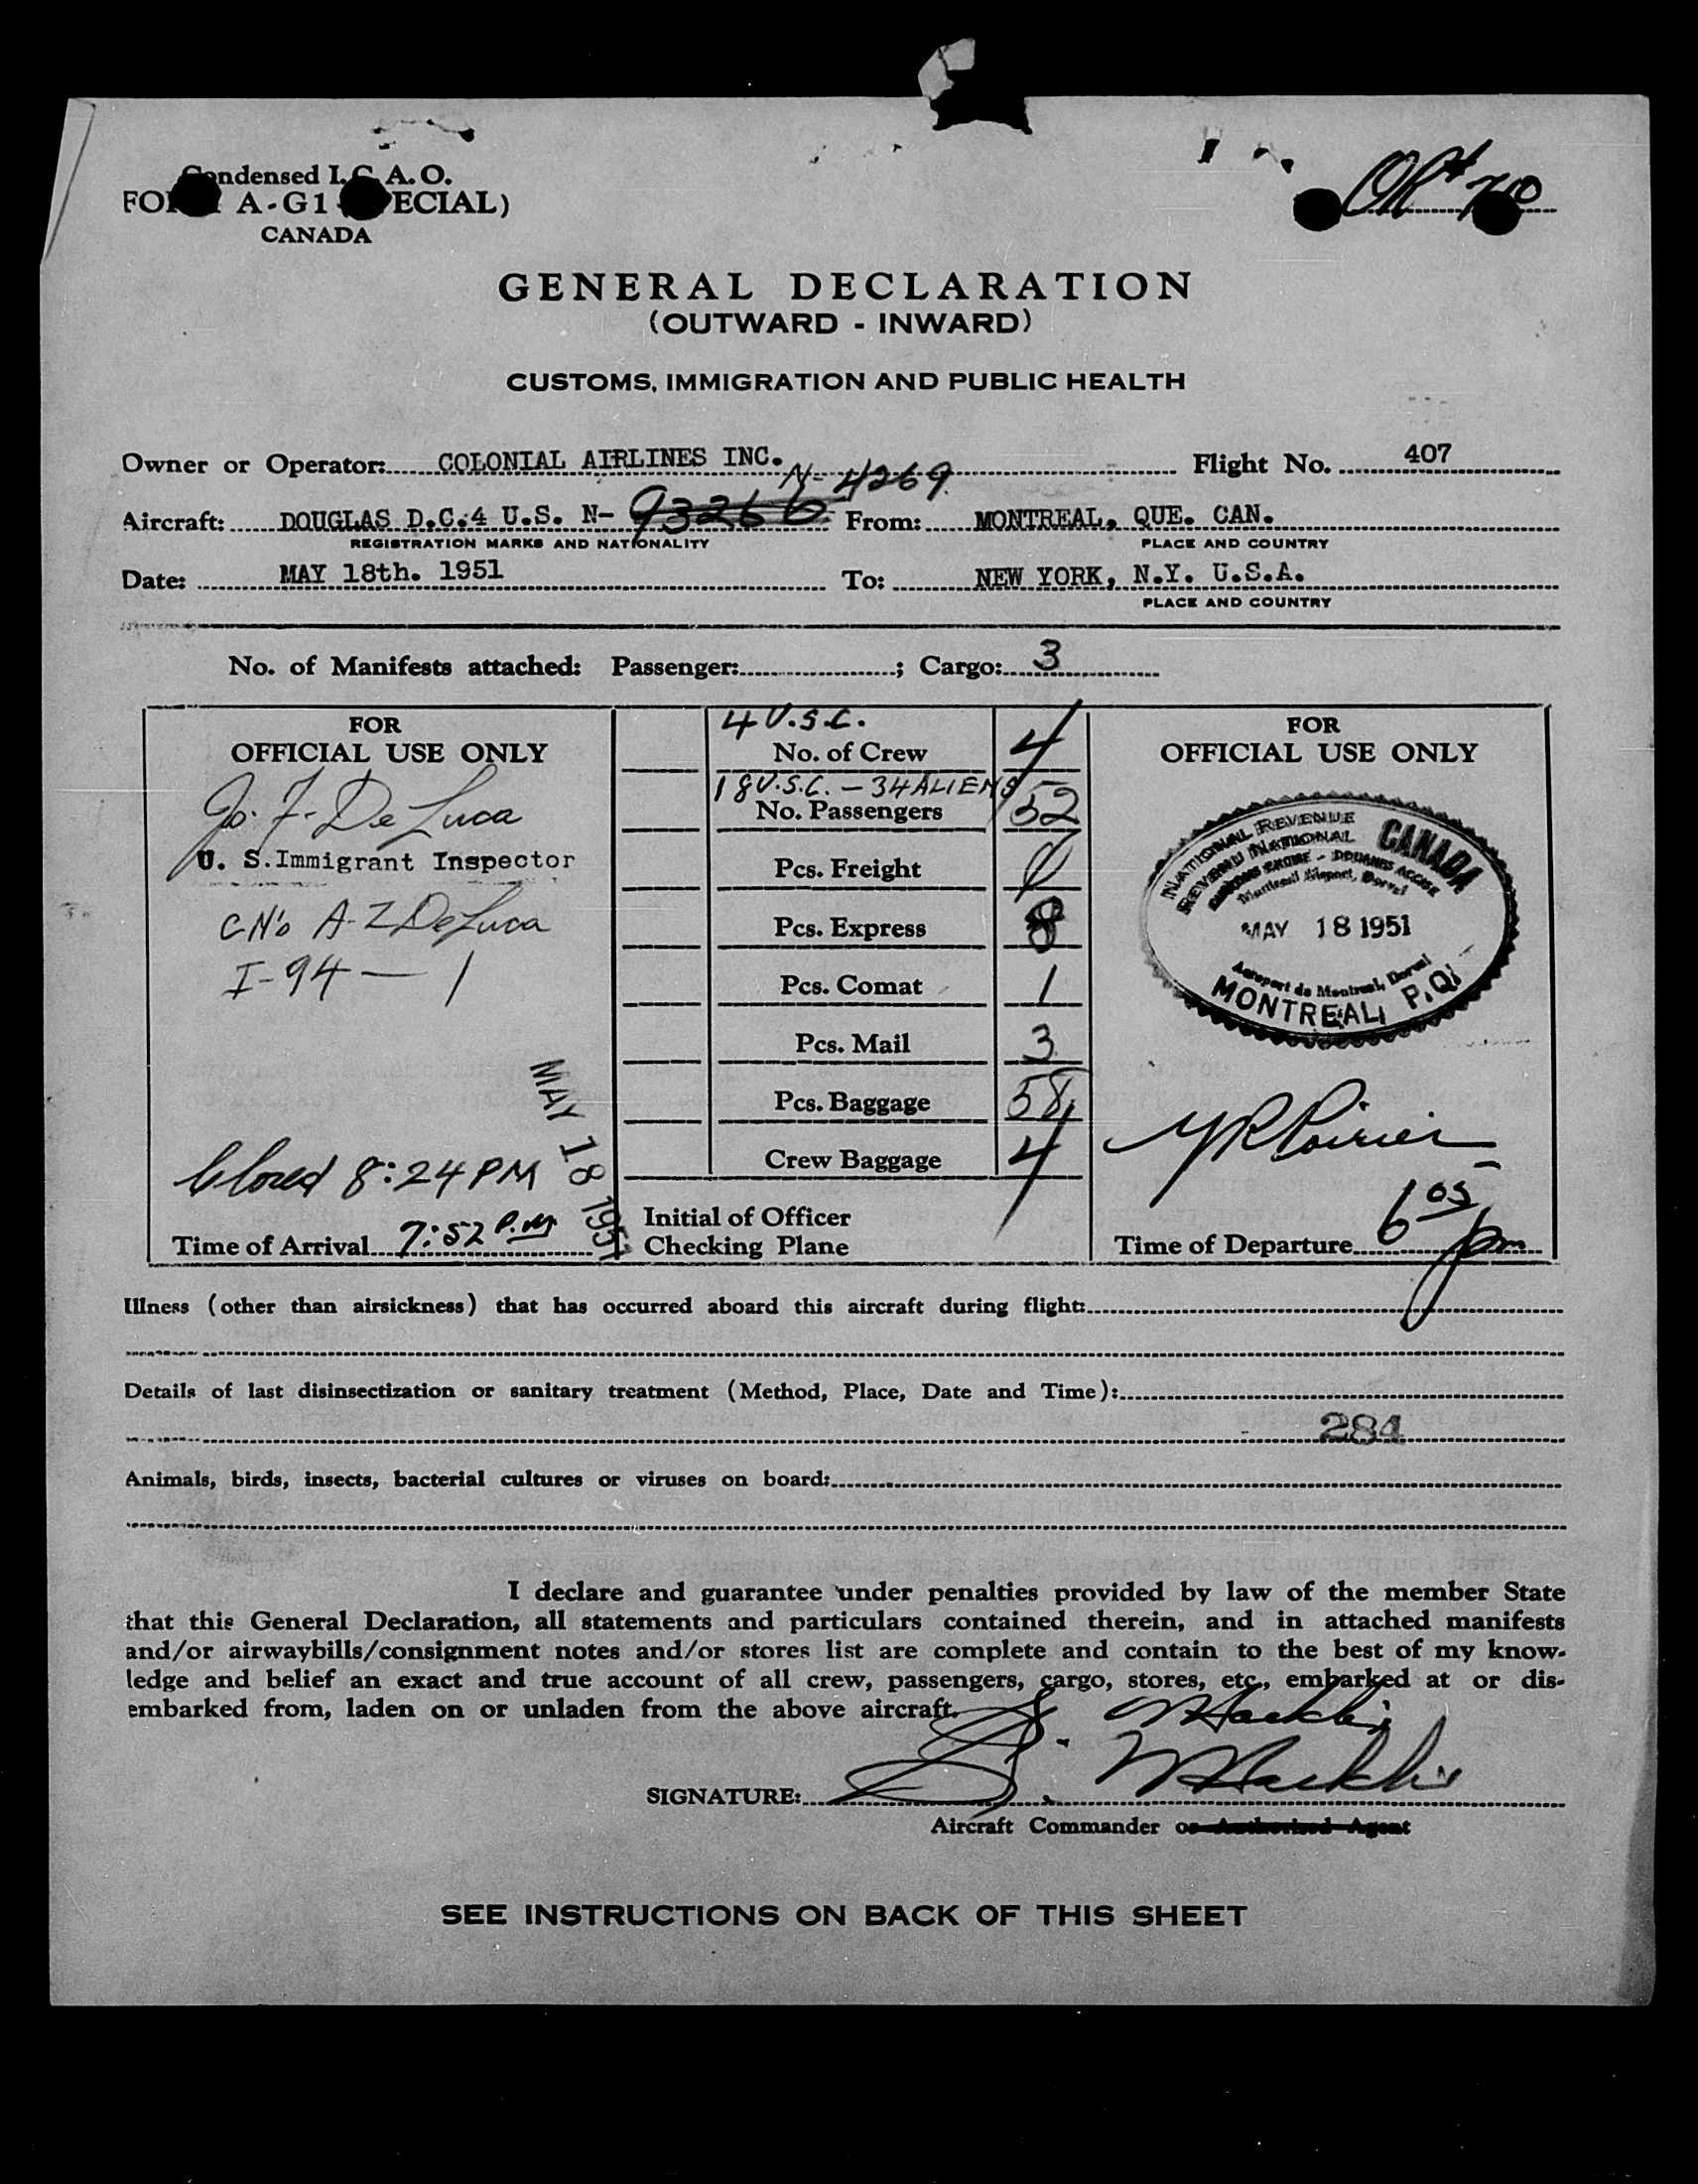 Condensed I.C.A.O.
FORM A-G1 (SPECIAL)
CANADA
GENERAL DECLARATION
(OUTWARD - INWARD)
CUSTOMS, IMMIGRATION AND PUBLIC HEALTH
Owner or Operator: COLONIAL AIRLINES INC. Flight No. 407
N-4269
Aircraft: DOUGLAS D.C.4 U.S. N- 93266 From: MONTREAL, QUE. CAN.
REGISTRATION MARKS AND NATIONALITY PLACE AND COUNTRY
Date: MAY 18th. 1951 To: NEW YORK, N.Y. U.S.A.
PLACE AND COUNTRY
No. of Manifests attached: Passenger: ; Cargo: 3
FOR
OFFICIAL USE ONLY
Jo. F. De Luca
U. S. Immigrant Inspector
A-Z De Luca
I-94 — 1
MAY 18 1951
Closed 8:24 PM
Time of Arrival 7:52 P.M.
4 U.S.C.
No. of Crew 4
18 U.S.C. - 34 ALIENS
No. Passengers 52
Pcs. Freight
Pcs. Express 8
Pcs. Comat 1
Pcs. Mail 3
Pcs. Baggage 58
Crew Baggage 4
Initial of Officer
Checking Plane
FOR
OFFICIAL USE ONLY
NATIONAL REVENUE
REVENU NATIONAL
CANADA
CUSTOMS EXCISE - DOUANES ACCISE
Montreal Airport, Dorval
MAY 18 1951
Aeroport de Montreal, Dorval
MONTREAL, P.Q.
Poirier
Time of Departure 6 05 pm
Illness (other than airsickness) that has occurred aboard this aircraft during flight:
Details of last disinsectization or sanitary treatment (Method, Place, Date and Time):
284
Animals, birds, insects, bacterial cultures or viruses on board:
I declare and guarantee under penalties provided by law of the member State
that this General Declaration, all statements and particulars contained therein, and in attached manifests
and/or airwaybills/consignment notes and/or stores list are complete and contain to the best of my know-
ledge and belief an exact and true account of all crew, passengers, cargo, stores, etc., embarked at or dis-
embarked from, laden on or unladen from the above aircraft.
SIGNATURE:
Aircraft Commander or Authorised Agent
SEE INSTRUCTIONS ON BACK OF THIS SHEET